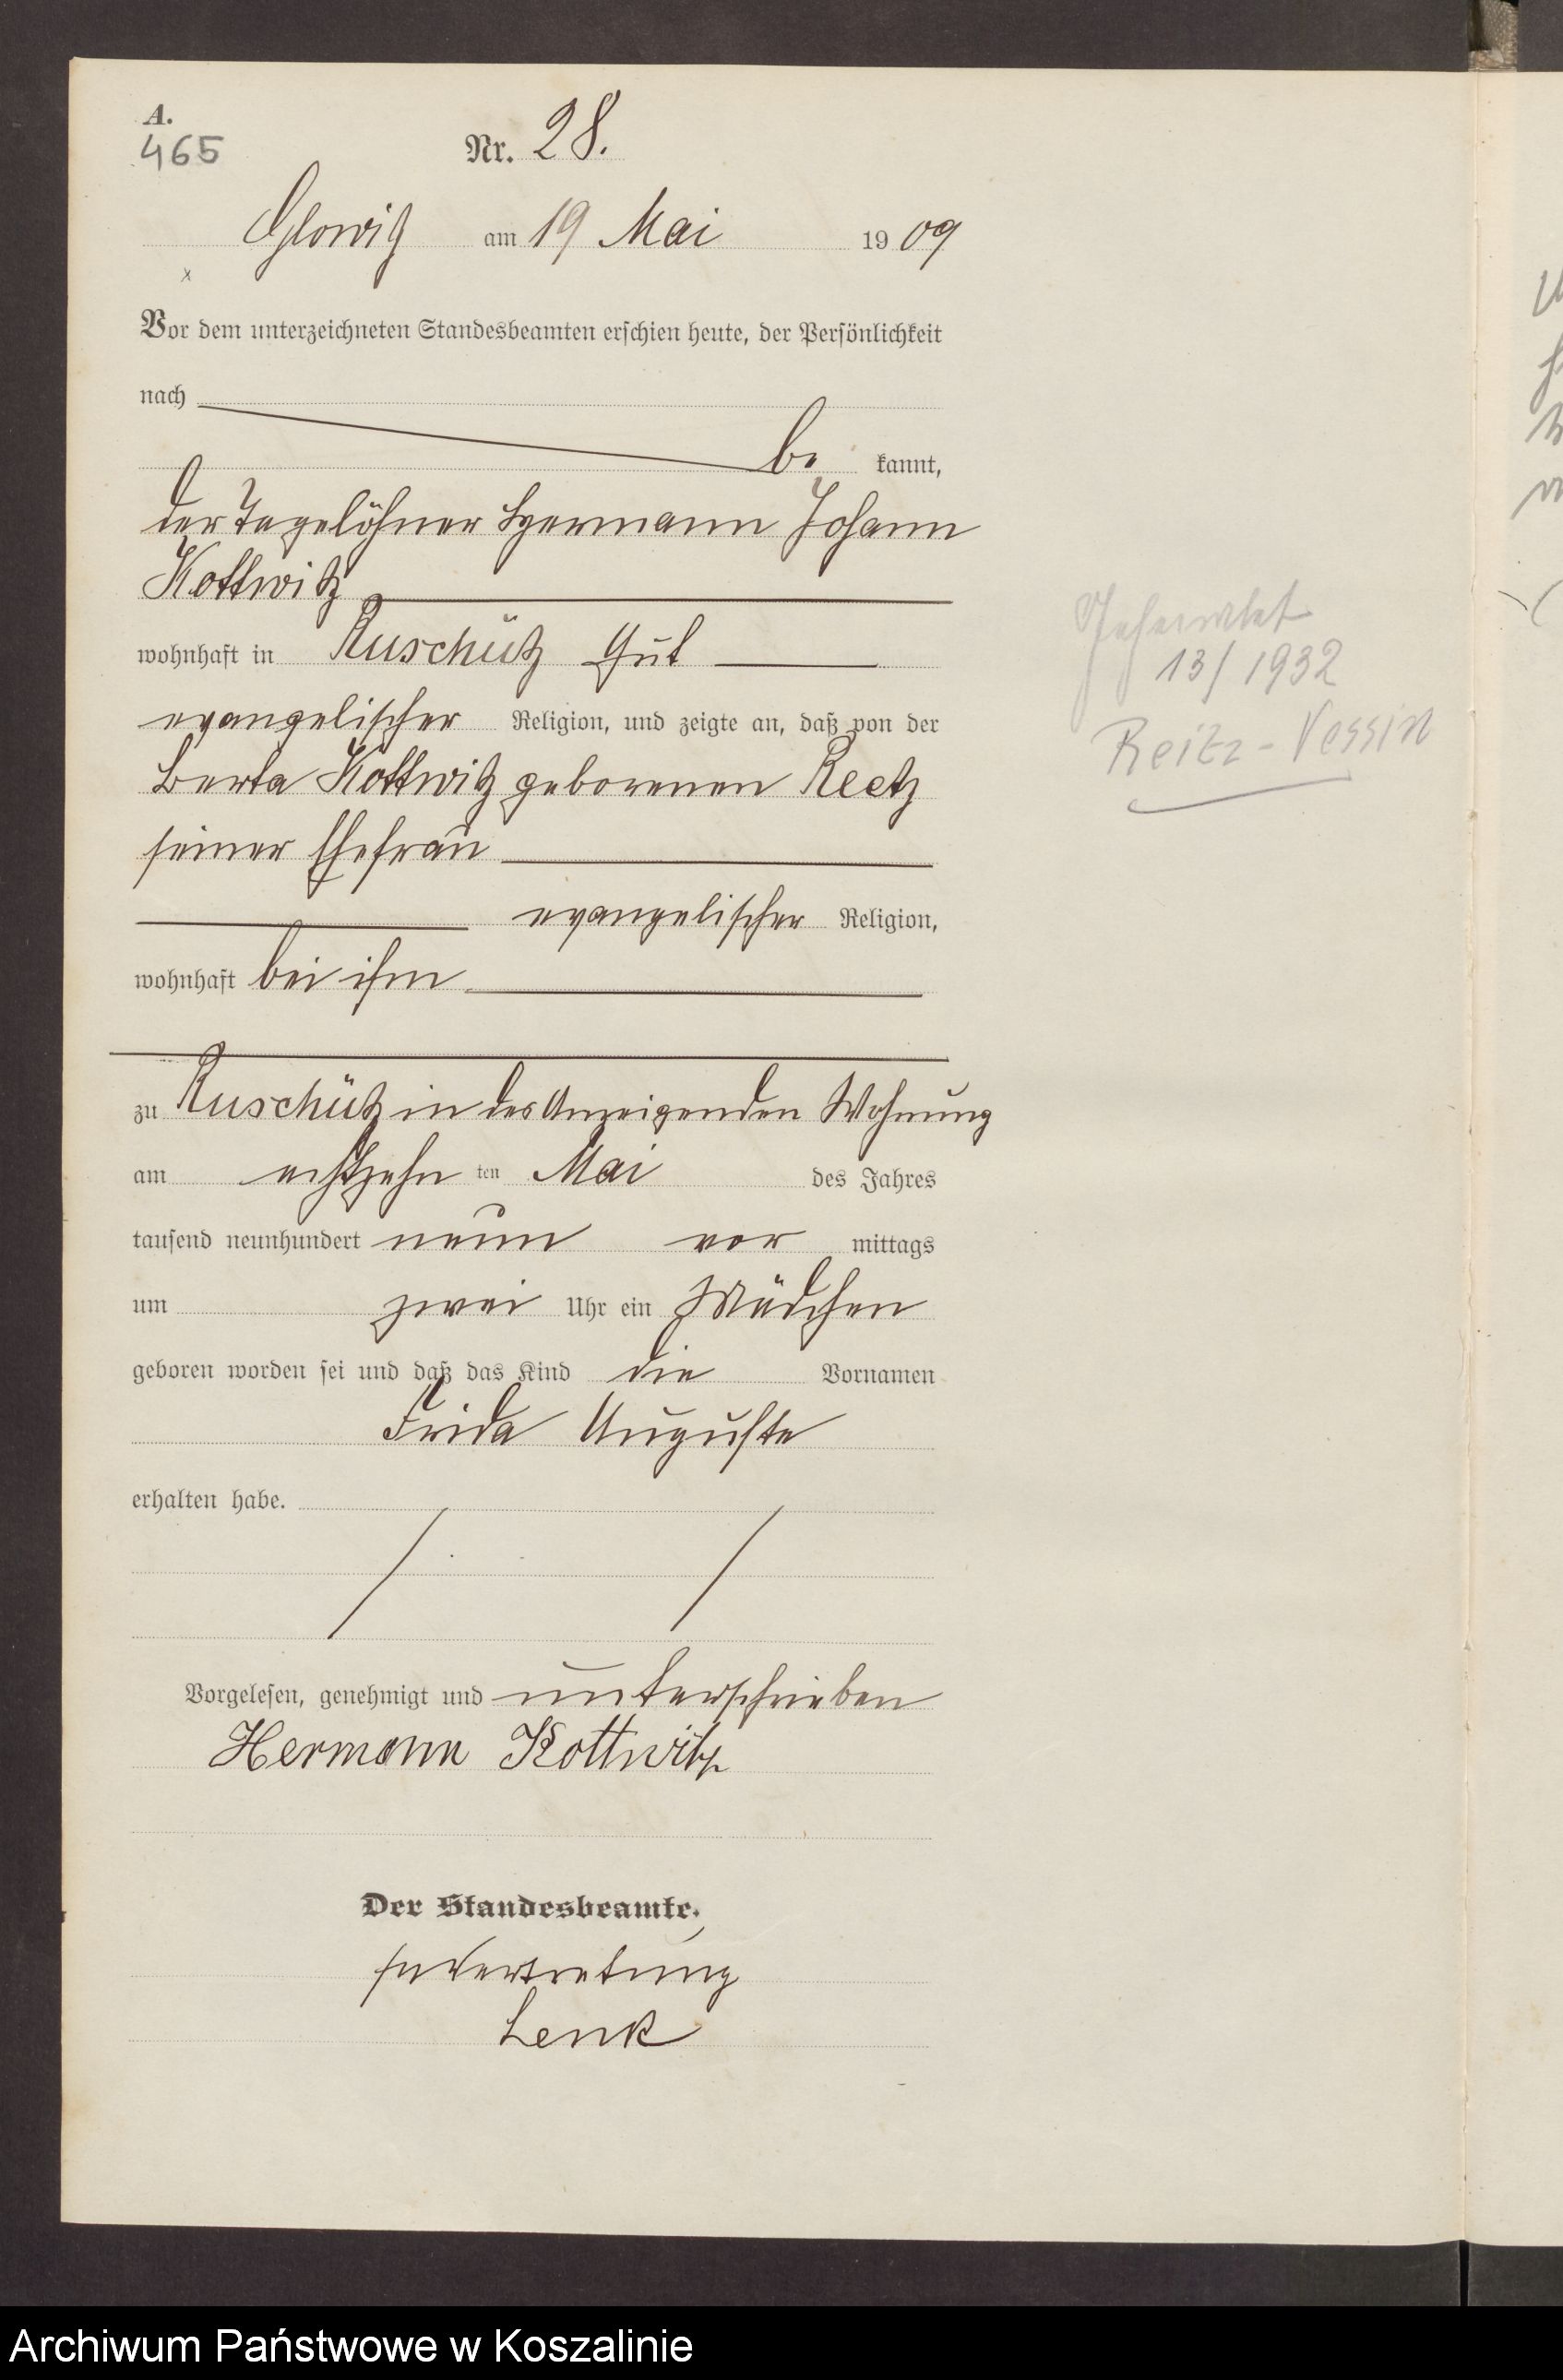 A.
465
Nr. 28.
Glowitz am 19 Mai 1909
Vor dem unterzeichneten Standesbeamten erschien heute, der Persönlichkeit
nach
be kannt,
der Tagelöhner Hermann Johann
Kottwitz
wohnhaft in Ruschütz Gut
evangelischer Religion, und zeigte an, daß von der
Berta Kottwitz geborenen Reetz
seiner Ehefrau
evangelischer Religion,
wohnhaft bei ihm
zu Ruschütz in des Anzeigenden Wohnung
am achtzehn ten Mai des Jahres
tausend neunhundert neun vor mittags
um zwei Uhr ein Mädchen
geboren worden sei und daß das Kind die Vornamen
Frida Auguste
erhalten habe.
Vorgelesen, genehmigt und unterschrieben
Hermann Kottwitz
Der Standesbeamte.
In Vertretung
Lenk
Geheiratet
13/1932
Reitz-Vessin
Archiwum Państwowe w Koszalinie